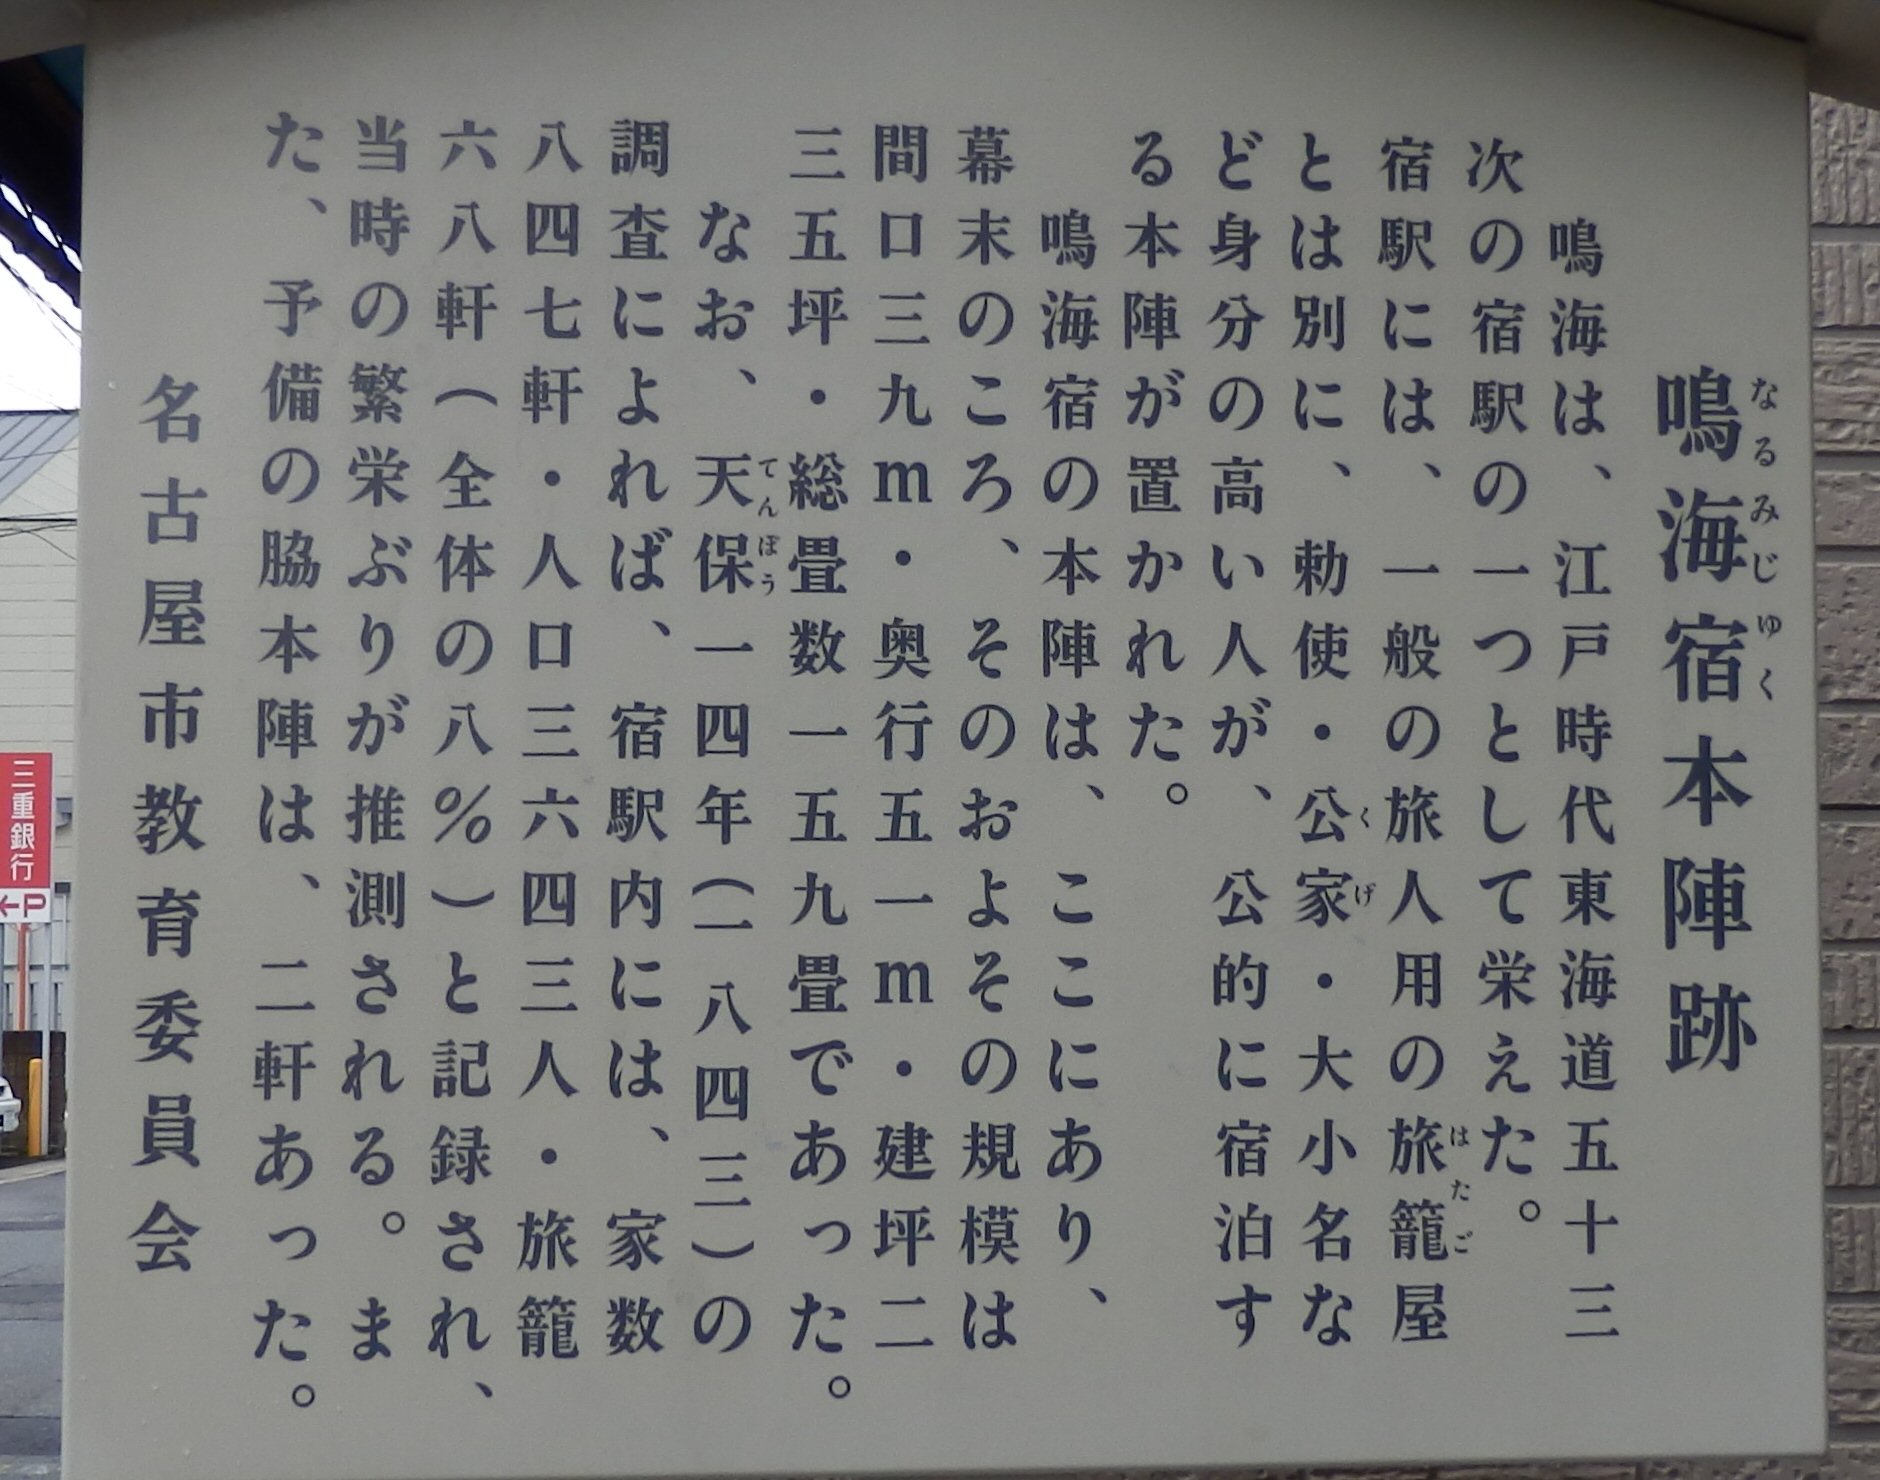 鳴海宿本陣跡
なるみじゆく
鳴海は、江戸時代東海道五十三
次の宿駅の一つとして栄えた。
宿駅には、一般の旅人用の旅籠屋
はたご
とは別に、勅使・公家・大小名な
くげ
ど身分の高い人が、公的に宿泊す
る本陣が置かれた。
鳴海宿の本陣は、ここにあり、
幕末のころ、そのおよその規模は
間口三九m・奥行五一m・建坪二
三五坪・総畳数一五九畳であった。
なお、天保一四年(一八四三)の
てんぽう
調査によれば、宿駅内には、家数
八四七軒・人口三六四三人・旅籠
六八軒(全体の八%)と記録され、
当時の繁栄ぶりが推測される。ま
た、予備の脇本陣は、二軒あった。
名古屋市教育委員会
三重銀行
←P